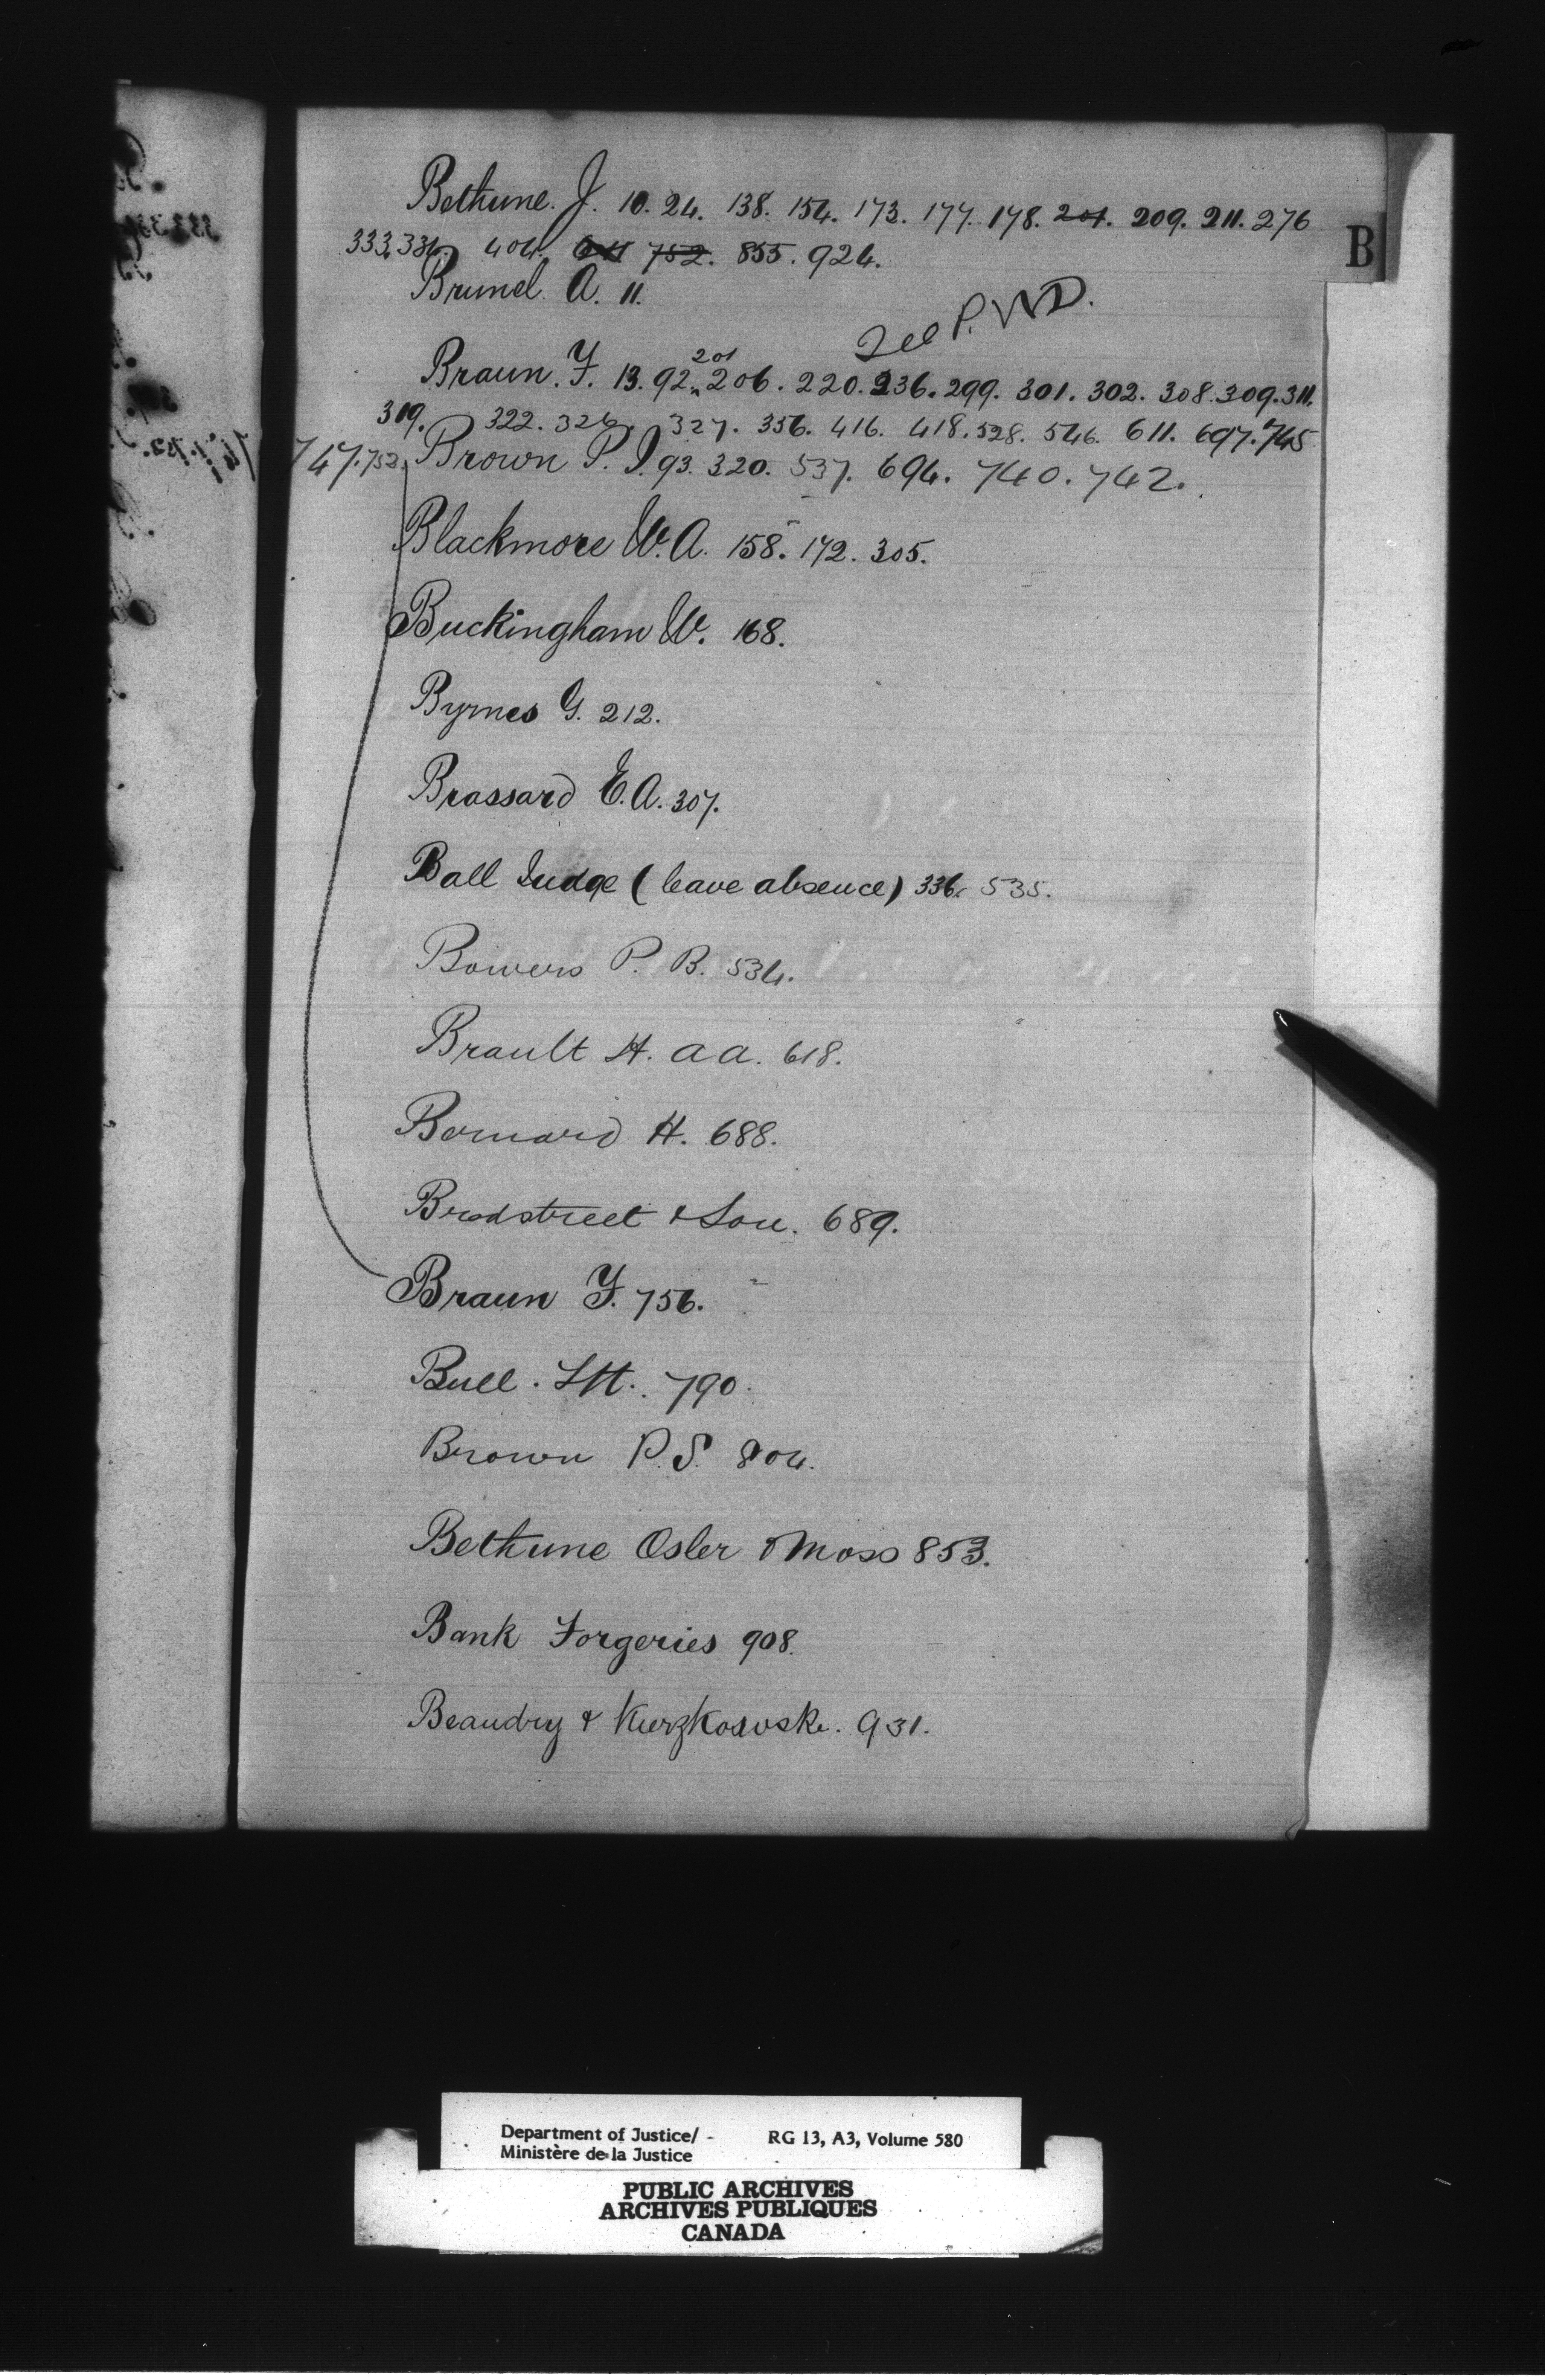 B
Bethune. J. 10. 24. 138. 154. 173. 177. 178. 201. 209. 211. 276
333. 334. 404. 611 752. 855. 924.
Brunel. A. 11.
See P.W.D.
Braun. F. 13. 92. 201 206. 220. 236. 299. 301. 302. 308. 309. 311.
319. 322. 326. 327. 356. 416. 418. 528. 546. 611. 697. 745
747. 752.
Brown P. J. 93. 320. 537. 694. 740. 742.
Blackmore W. A. 158. 172. 305.
Buckingham W. 168.
Byrnes G. 212.
Brassard E. A. 307.
Ball Judge (leave absence) 336. 535.
Bowers P. B. 534.
Brault H. A A. 618.
Bernard H. 688.
Bradstreet & Son. 689.
Braun F. 756.
Bull. 790.
Brown P. S. 804.
Bethune Osler & Moss 853.
Bank Forgeries 908.
Beaudry & 931.
Department of Justice/ RG 13, A3, Volume 580
Ministère de la Justice
PUBLIC ARCHIVES
ARCHIVES PUBLIQUES
CANADA